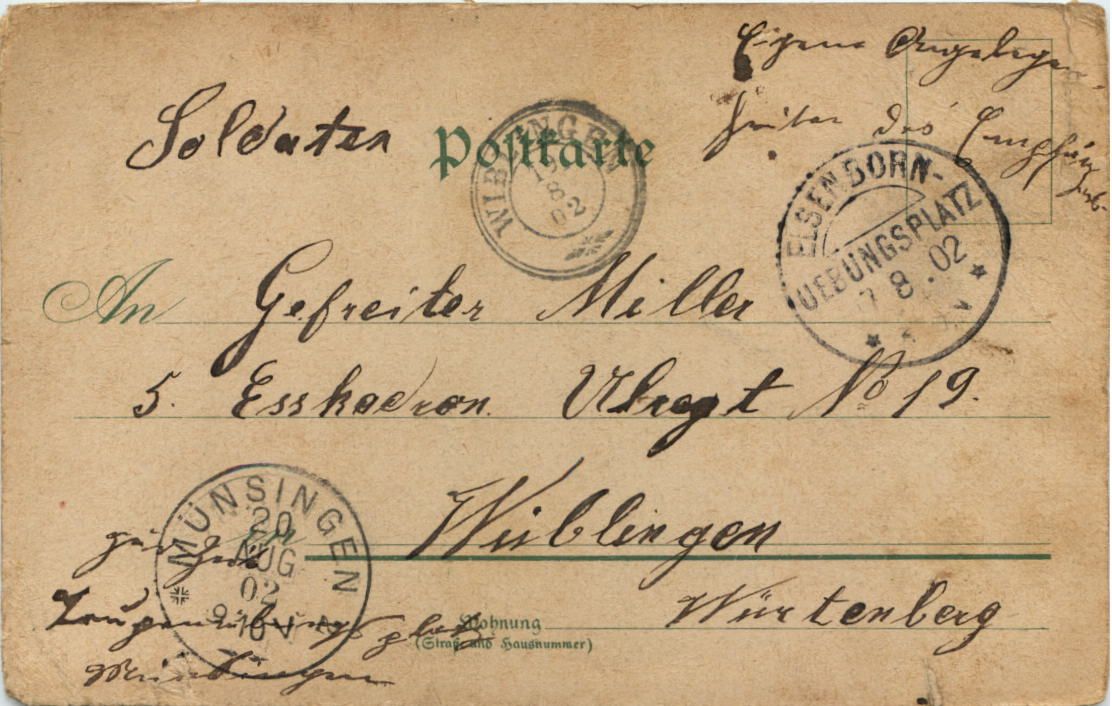 Eigene Angelegen-
heiten des Empfän-
gers
Soldaten
Postkarte
WIBLINGEN
19
8
02
ELSENBORN-
UEBUNGSPLATZ
7 8.02
V
An
Gefreiter Miller
5. Esskadron Ulregt No 19.
Wüblingen
Würtenberg
MÜNSINGEN
20
AUG
02
9-10V
In
Truppenübungsplatz
Münsingen
Wohnung
(Straße und Hausnummer)